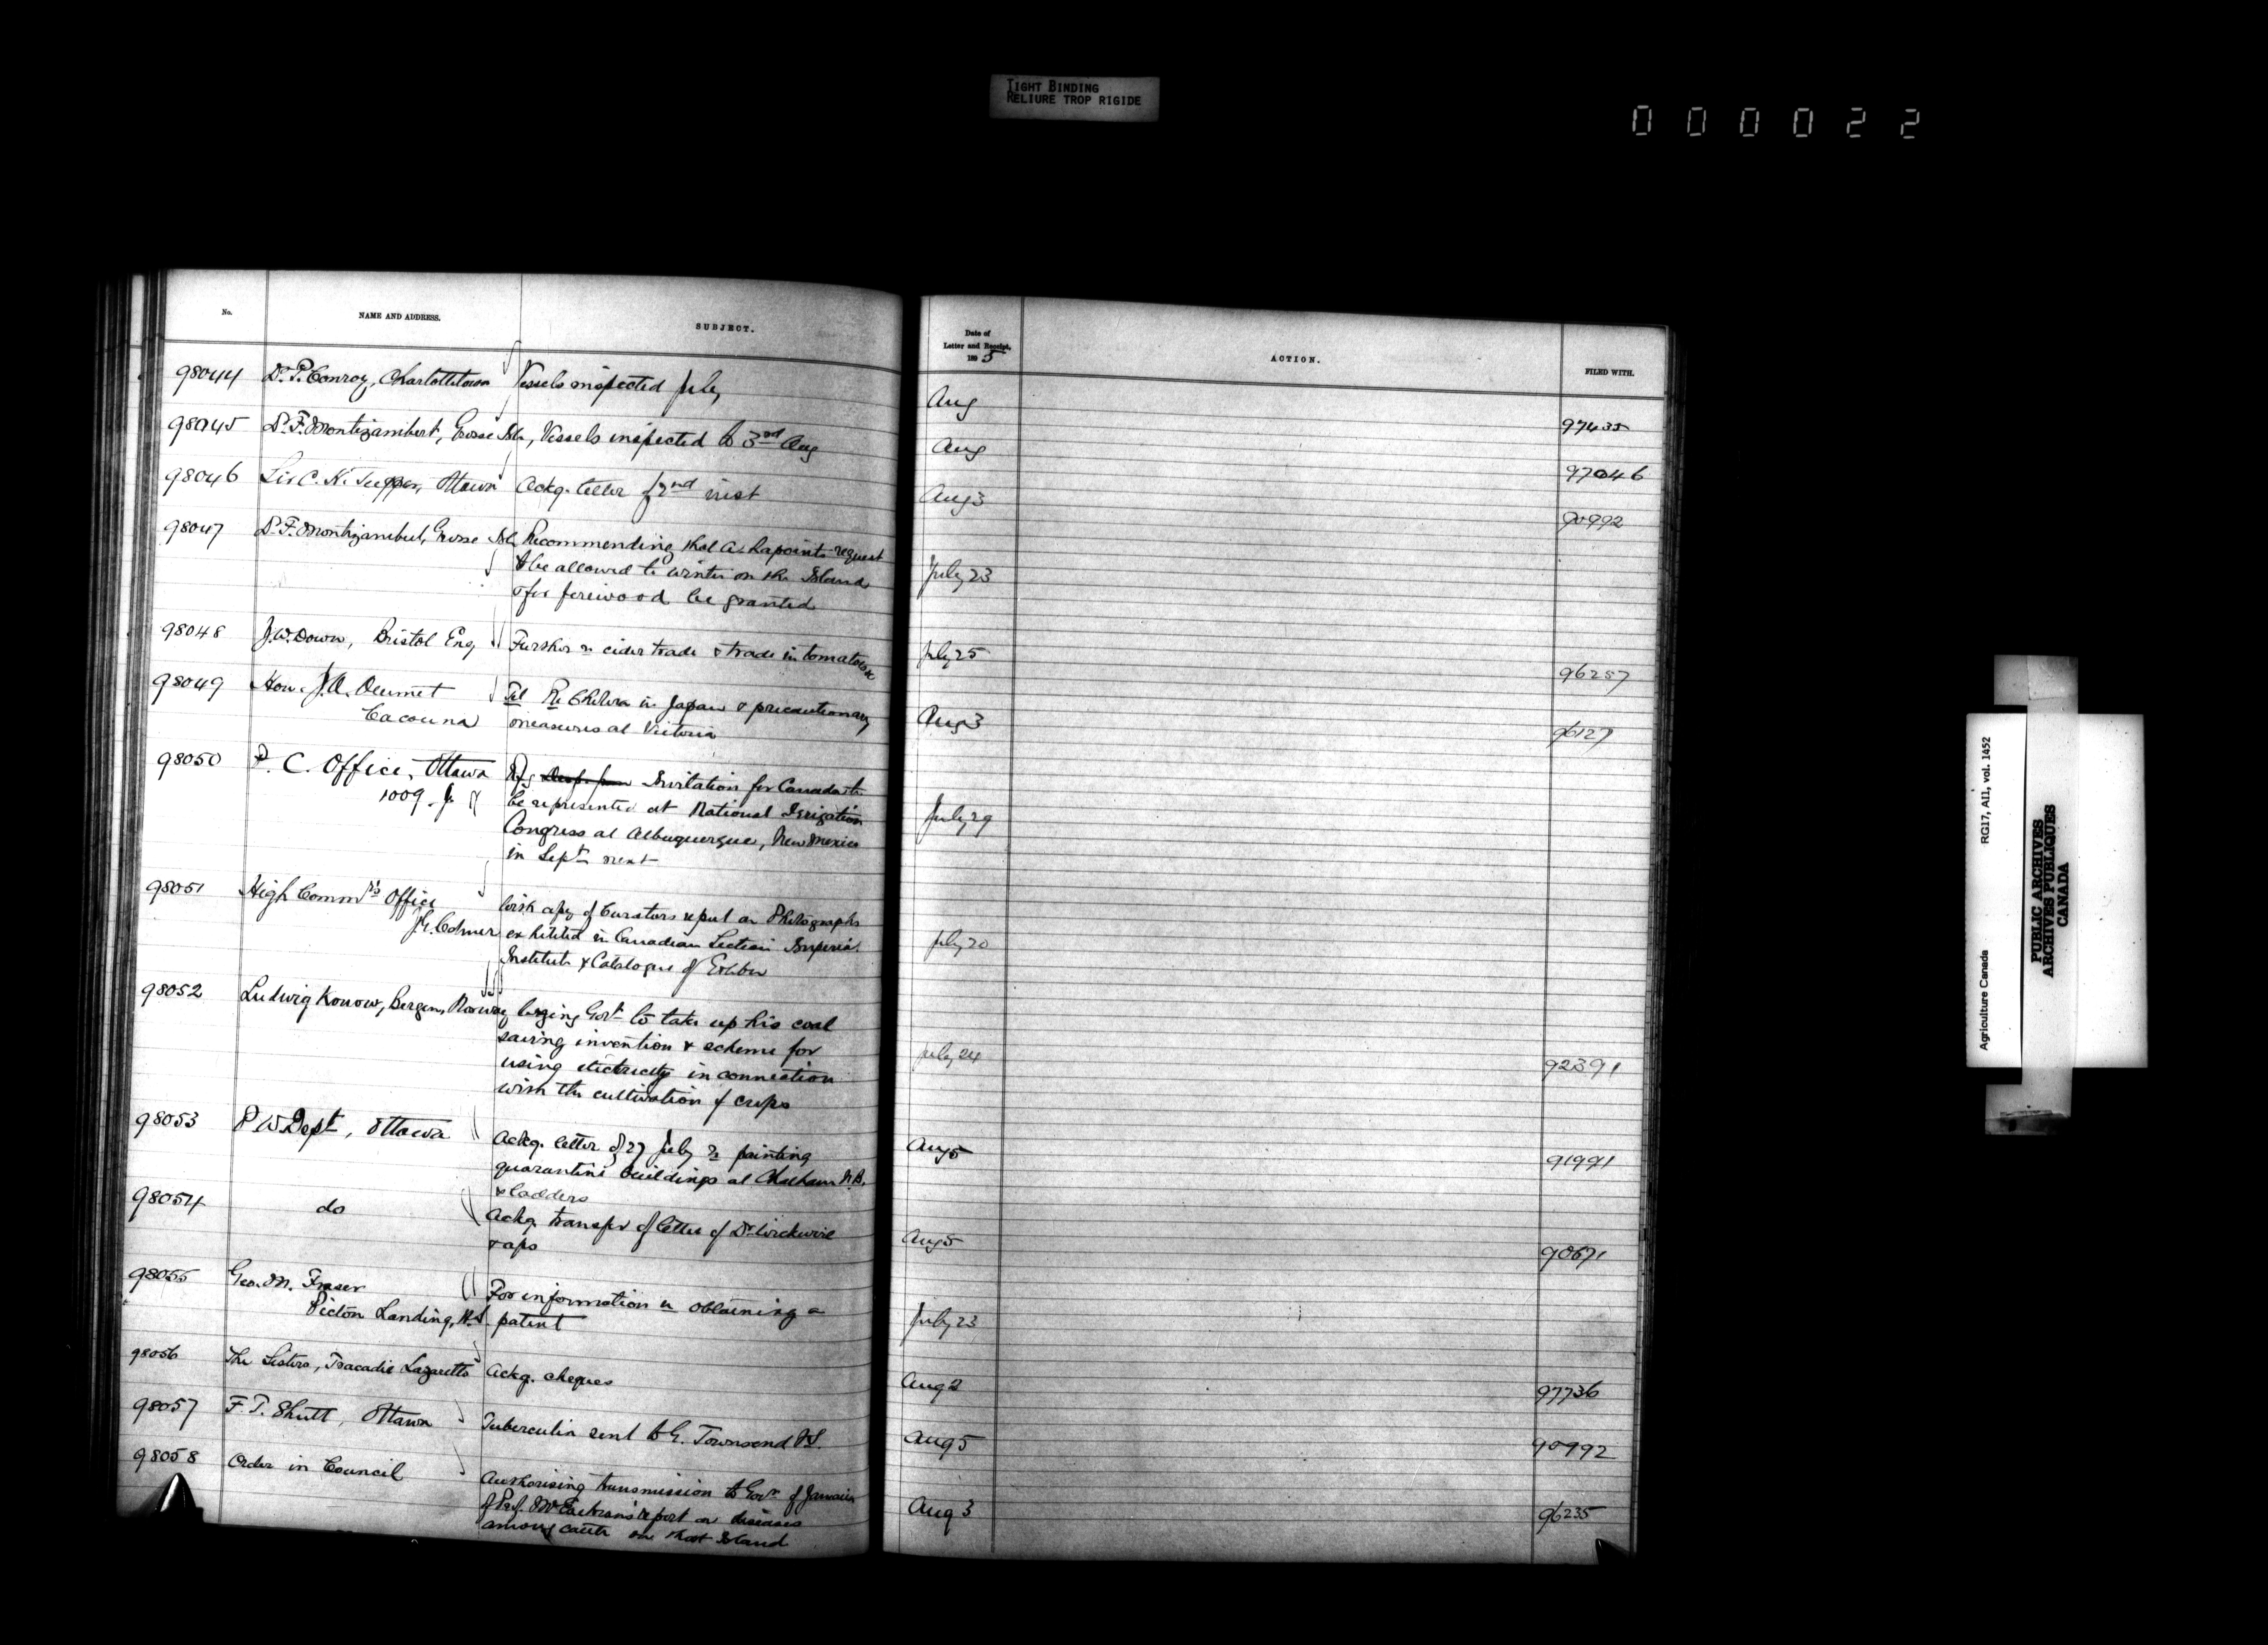 TIGHT BINDING
RELIURE TROP RIGIDE
000022
No. NAME AND ADDRESS. SUBJECT. Date of Letter and Receipt, 1895 ACTION. FILED WITH.
98044 Dr. P. Conroy, Charlottetown Vessels inspected July Aug 97435
98045 Dr. F. Montizambert, Grosse Isle, Vessels inspected to 3rd Aug Aug 97046
98046 Sir C. H. Tupper, Ottawa Ackg. letter of 2nd inst Aug 3 90992
98047 Dr. F. Montizambert, Grosse Isle Recommending that A. Lapointe request July 23
to be allowed to winter on the Island
& for firewood be granted
98048 J. W. Down, Bristol Eng Further re cider trade & trade in tomatoes July 25 96257
98049 Hon. J. A. Ouimet Tel Re Cholera in Japan & precautionary Aug 3 96127
Cacouna measures at Victoria
98050 P. C. Office, Ottawa Rfg Invitation for Canada to July 29
1009. J. be represented at National Irrigation
Congress at Albuquerque, New Mexico
in Sept next
98051 High Commrs Office With copy of Curators report on Photographs July 20
J. G. Colmer exhibited in Canadian Section Imperial
Institute & Catalogue of Exhibn
98052 Ludwig Konow, Bergen, Norway Urging Govt to take up his coal July 24 92391
saving invention & scheme for
using electricity in connection
with the cultivation of crops
98053 P W Dept, Ottawa Ackg. letter of 27 July re painting Aug 5 91991
quarantine buildings at Chatham N.B.
& ladders
98054 do Ackg. transfer of letter of Dr Wickwire Aug 5 90671
& aps
98055 Geo. M. Fraser For information re obtaining a July 23
Pictou Landing, N.S. patent
98056 The Sisters, Tracadie Lazaretto Ackg. cheques Aug 2 97736
98057 F. T. Shutt, Ottawa Tuberculin sent to G. Townsend N.S. Aug 5 90992
98058 Order in Council Authorising transmission to Govr of Jamaica Aug 3 96235
of Prof. McEachran's report on diseases
among cattle on that Island
Agriculture Canada RG17, AII, vol. 1452
PUBLIC ARCHIVES
ARCHIVES PUBLIQUES
CANADA